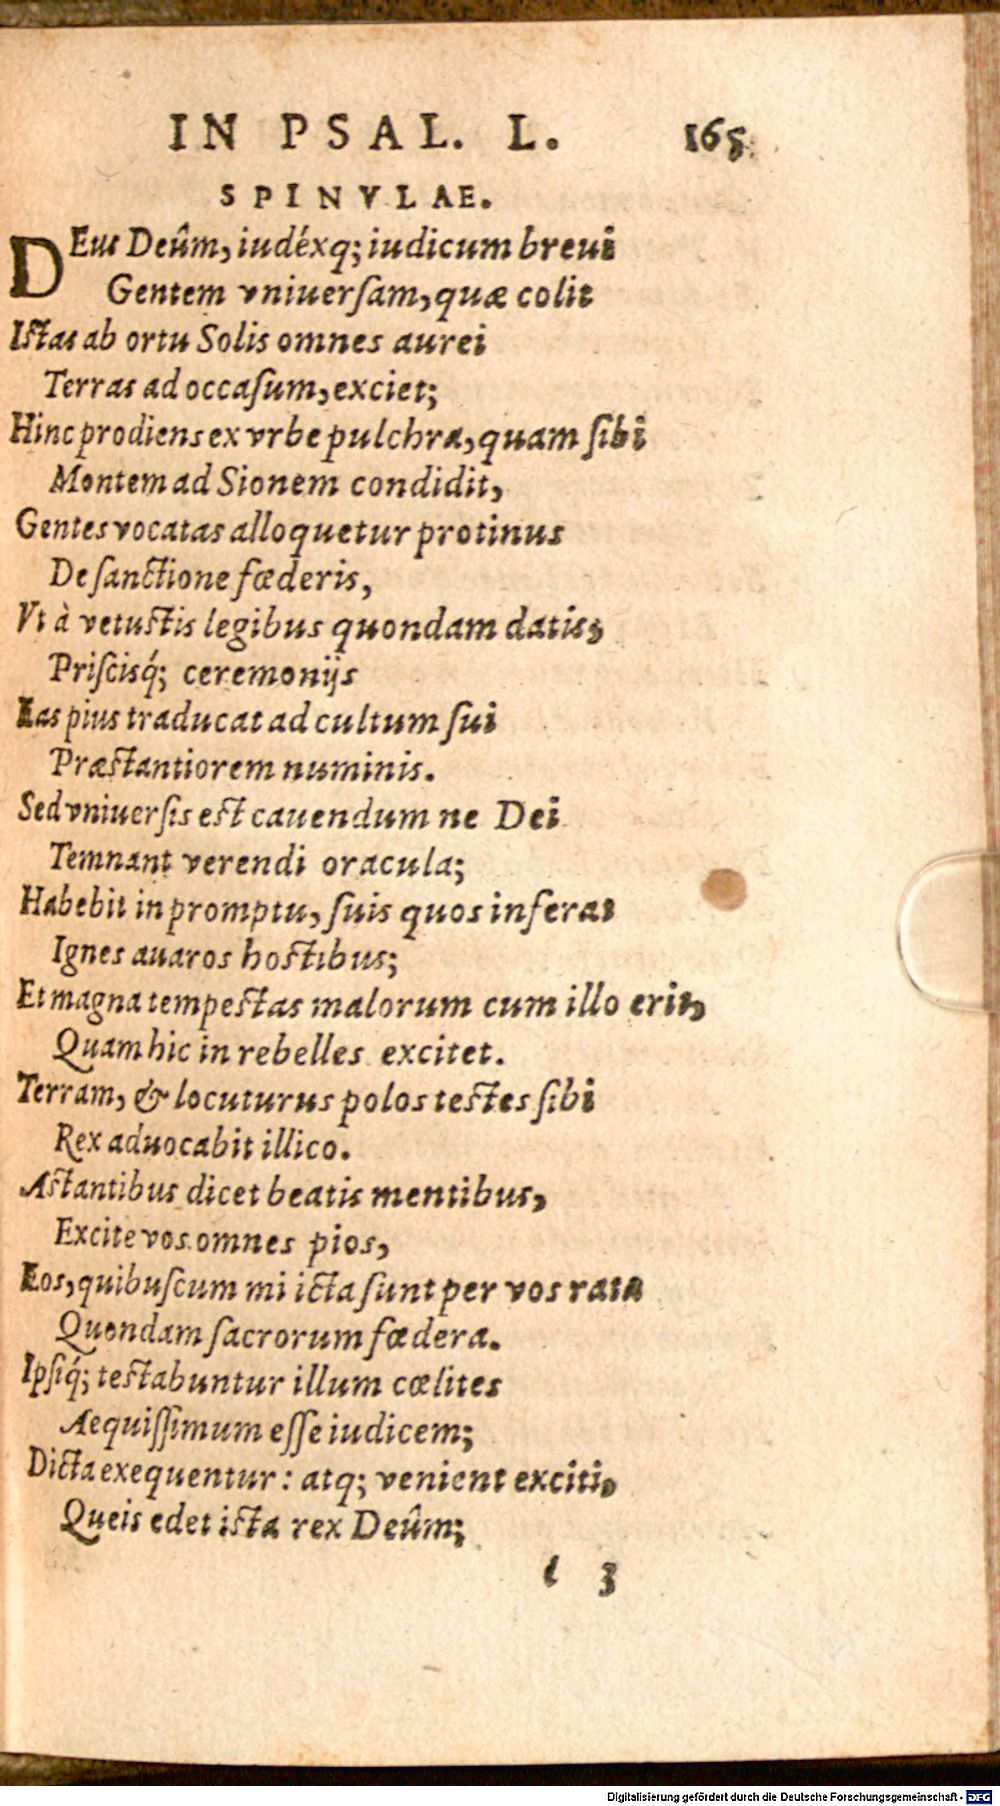 IN PSAL. L. 165
SPINVLAE.
DEus Deûm, iudéxq; iudicum breui
Gentem vniuersam, quæ colit
Istas ab ortu Solis omnes aurei
Terras ad occasum, exciet;
Hinc prodiens ex vrbe pulchra, quam sibi
Montem ad Sionem condidit,
Gentes vocatas alloquetur protinus
De sanctione fœderis,
Vt à vetustis legibus quondam datis,
Priscisq́; ceremonijs
Eas pius traducat ad cultum sui
Præstantiorem numinis.
Sed vniuersis est cauendum ne Dei
Temnant verendi oracula;
Habebit in promptu, suis quos inferat
Ignes auaros hostibus;
Et magna tempestas malorum cum illo erit,
Quam hic in rebelles excitet.
Terram, & locuturus polos testes sibi
Rex aduocabit illico.
Astantibus dicet beatis mentibus,
Excite vos omnes pios,
Eos, quibuscum mi icta sunt per vos rata
Quondam sacrorum fœdera.
Ipsiq́; testabuntur illum cœlites
Aequissimum esse iudicem;
Dicta exequentur: atq; venient exciti,
Queis edet ista rex Deûm;
l 3
Digitalisierung gefördert durch die Deutsche Forschungsgemeinschaft - DFG